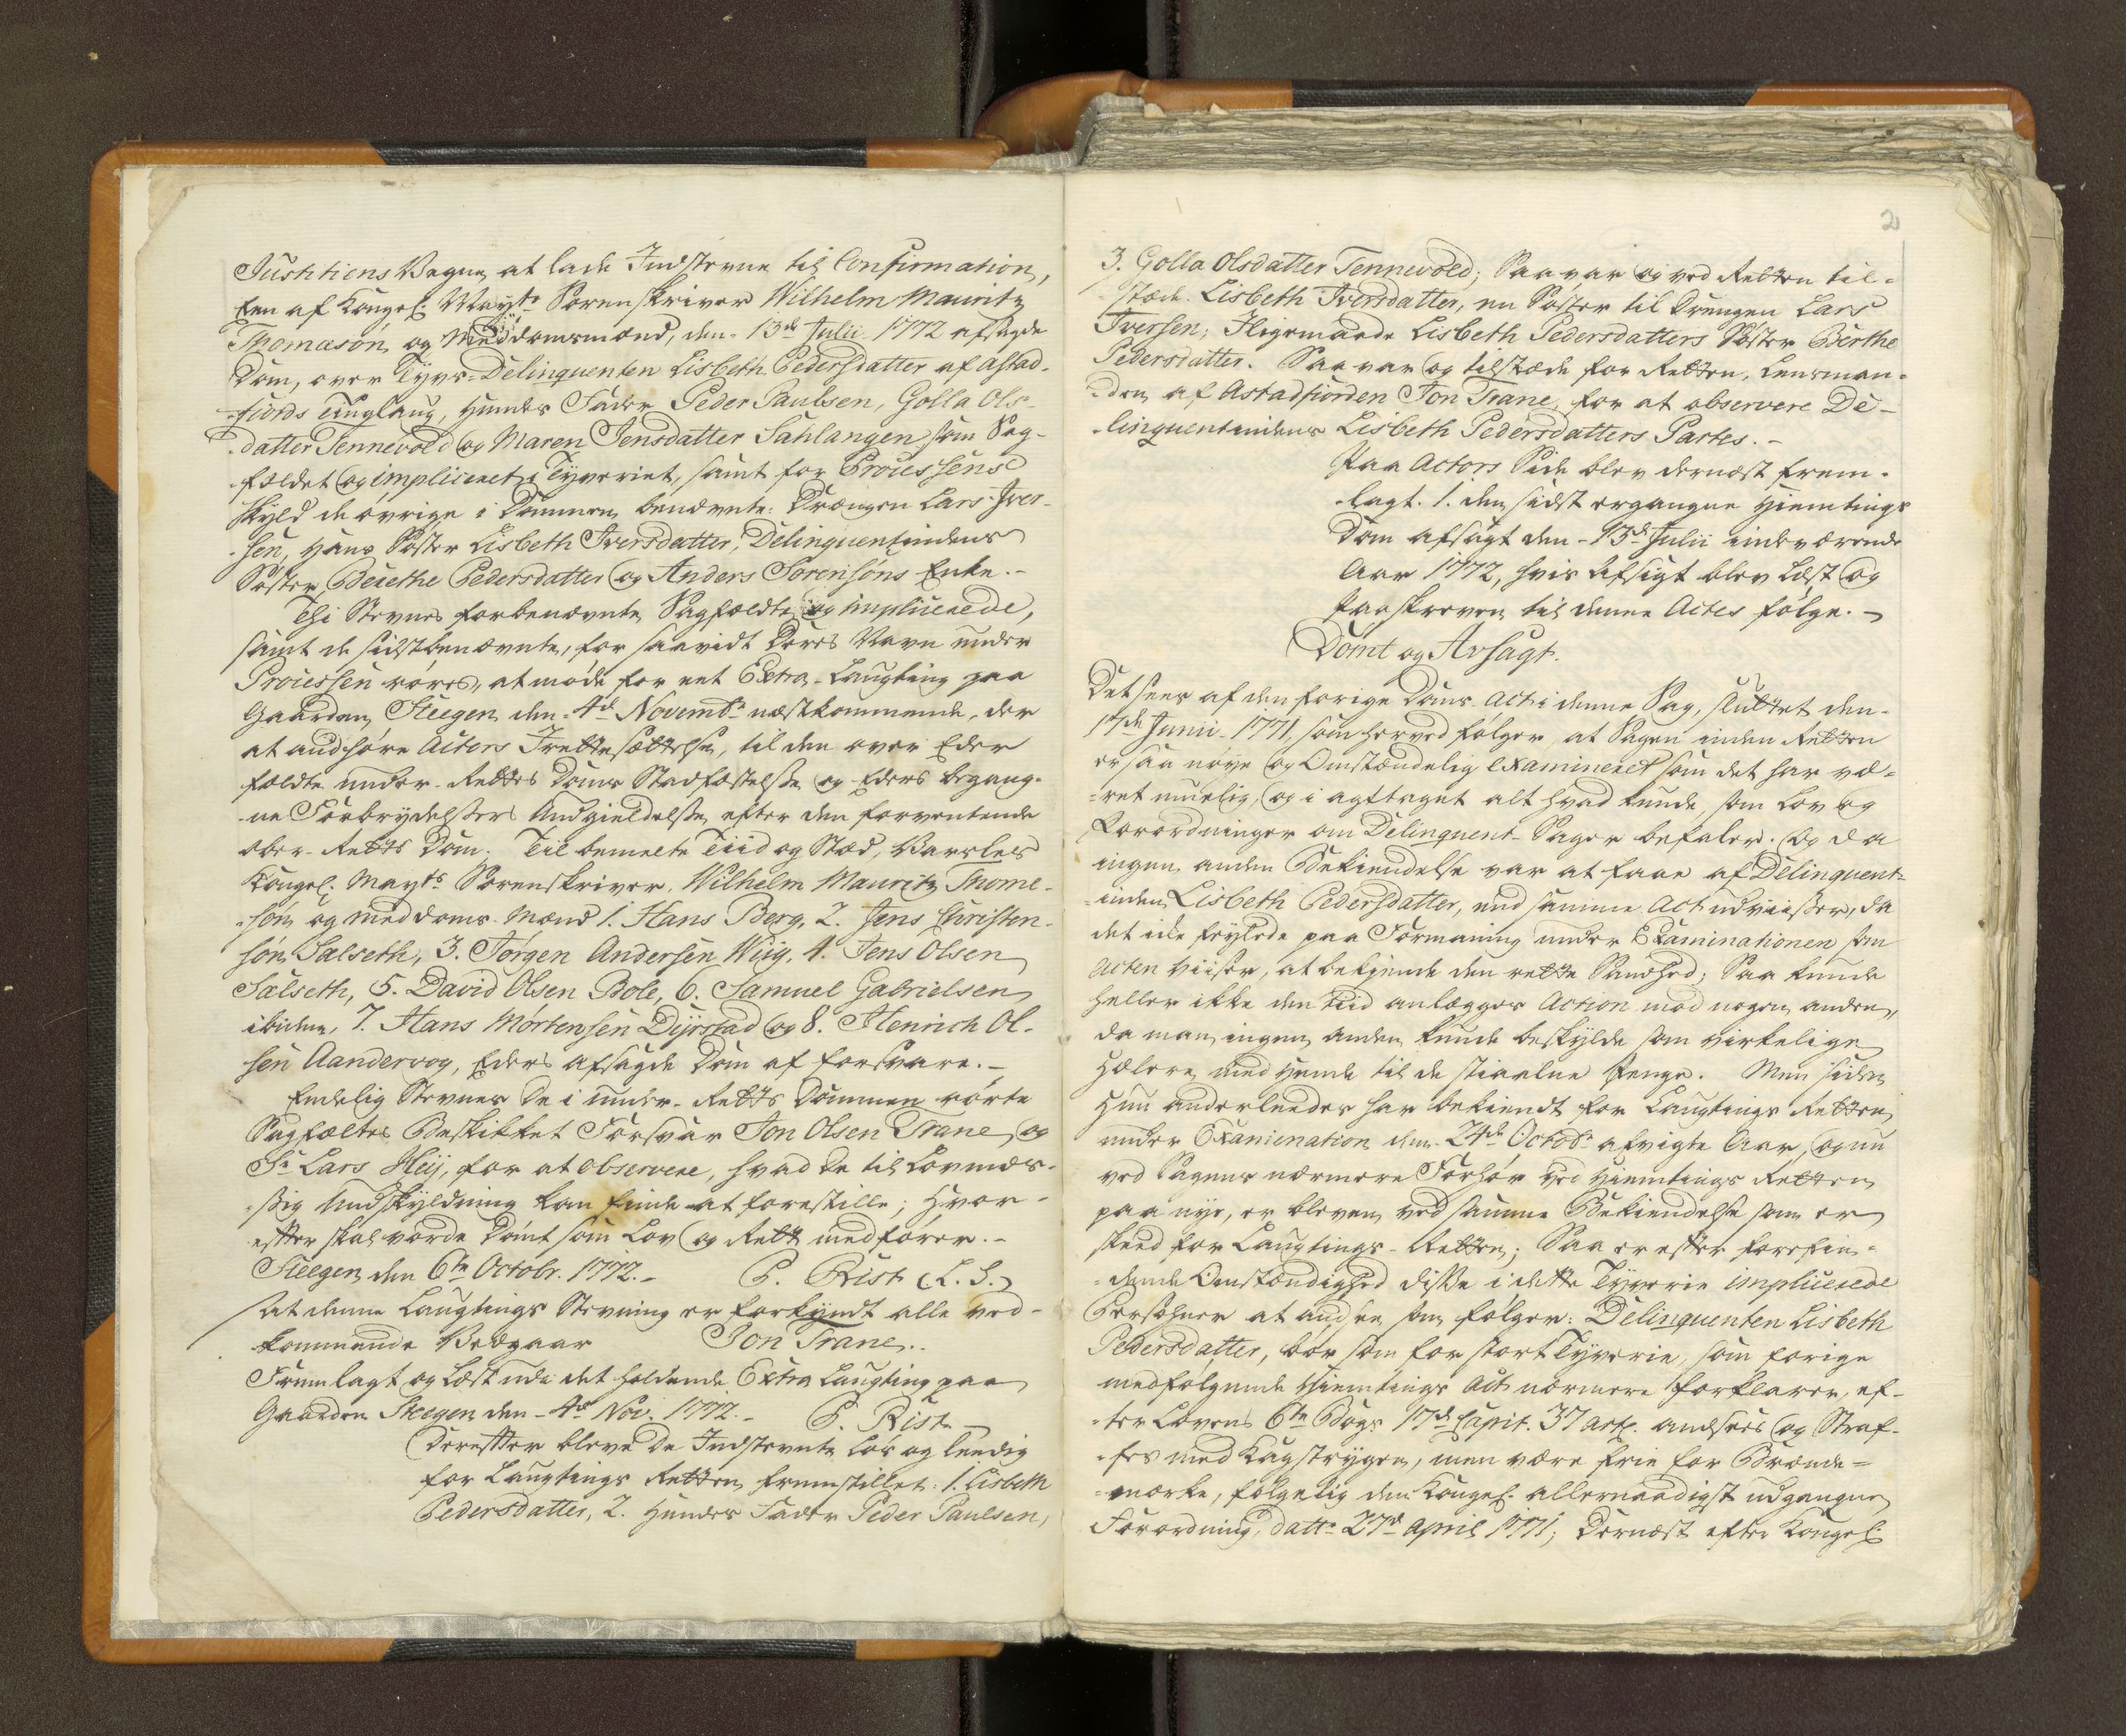 Justitiens Vegne at lade Indstevne til Confirmation,
Een af Kongel: Mayts Sorenskriver Wilhelm Mauritz
Thomasøn og Meddomsmænd, den 13de Julii 1772 afsagde
Dom, over Tyvs-Delinquenten Lisbeth Pedersdatter af Astad-
fiords Tinglaug, hendes Fader Peder Paulsen, Golla Ols-
datter Tennevold og Maren Jensdatter Sahlangen som Sag-
fældet og impliceret i Tyveriet, samt for Processens
skyld de øvrige i Dommen benævnte: Drængen Lars Iver-
sen, hans Søster Lisbeth Iversdatter, Delinquentindens
Søster Berethe Pedersdatter og Anders Sørensøns Enke.-
Thi Stevnes forbenævnte Sagfældte og implicerede,
samt de sidstbenævnte, for saavidt Deres Navn under
Processen røres, at møde for eet Extra-Laugting paa
Gaarden Steegen den 4de Novembr næstkommende, der
at andhøre Actors Irettesættelse, til den over Eder
fældte under-Rettes Doms Stadfæstelse og Eders begang-
ne Forbrydelsers Undgieldelse efter den forventende
ober-Retts Dom. Til bemelte Tiid og Stæd, Varsles
Kongel: Mayts Sorenskriver, Wilhelm Mauritz Thome-
søn og meddoms-Mænd 1. Hans Berg, 2. Jens Christen-
søn Salseth, 3. Jørgen Andersen Wiig, 4. Jens Olsen
Salseth, 5. David Olsen Bole, 6. Samuel Gabrielsen
ibidem, 7. Hans Mørtensen Dyrstad og 8. Henrich Ol-
sen Aandervog, Eders afsagde Dom at forsvare.-
Endelig Stevnes De i under-Retts Dommen rørte
Sagfældtes Beskikket Forsvar Jon Olsen Trane, og
Sr Lars Heij, for at observere, hvad De til Lovmæs-
sig Undskyldning kan finde at forestille; Hvor-
effter skal vorde Dømt som Lov og Rett medfører.-
Steegen den 6te Octobr. 1772.- P. Rist (L.S.)
At denne Laugtings Stevning er forkyndt alle ved-
kommende Vedgaar Jon Trane..
Fremlagt og Læst udi det holdende Extra Laugting paa
Gaarden Steegen den 4de Nov. 1772.- P. Rist
Dereffter bleve De Indstevnte løs og leedig
for Laugtings Retten fremstillet: 1. Lisbeth
Pedersdatter, 2. hendes Fader Peder Paulsen,
2
3. Golla Olsdatter Tennevold; Saa var og ved Retten til-
stæde Lisbeth Iversdatter, en Søster til Drengen Lars
Iversen; Iligemaade Lisbeth Pedersdatters Søster Birthe
Pedersdatter. Saa var og tilstæde for Retten, Lensman-
den af Astadfiorden Jon Trane, for at observere De-
linquentindens Lisbeth Pedersdatters Partes.-
Paa Actors Side blev dernæst frem-
lagt. 1. den sidst ergangne Hiemtings
Dom afsagt den 13de Julii indeværende
Aar 1772, hvis Afsigt blev Læst og
paaskreven til denne Actes følge.-
Dømt og Avsagt.
Det sees af den forige Doms Act i denne Sag, sluttet den
17de Junii 1771, som herved følger, at Sagen inden Retten
er saa nøye og Omstændelig examineret som det har væ-
ret muelig, og i agttaget alt hvad kunde som Lov og
Forordninger om Delinquent-Sager befaler. Og da
ingen anden Bekiendelse var at faae af Delinquent-
inden Lisbeth Pedersdatter, end samme Act udviiser, da
det icke feylede paa Formaning under Examinationen som
Acten viiser, at bekiende den rette Sandhed; Saa kunde
heller ikke den tiid anlægges Action mod nogen anden,
da man ingen anden kunde beskylde som virkelige
Hælere med hende til de stiaalne Penge. Men siden
hun anderleedes har bekiendt for Laugtings Retten
under Examination den 24de Octobr afvigte Aar, og nu
ved Sagens nærmere Forhør ved Hiemtings Retten
paa nye, er bleven ved samme Bekiendelse som er
skeed for Laugtings-Retten; Saa er effter forefin-
dende Omstændighed disse i dette Tyverie implicerede
Persohner at andsee som følger: Delinquenten Lisbeth
Pedersdatter, bør som for stort Tyverie, som forige
medfølgende Hiemtings Act nærmere forklarer, ef-
ter Lovens 6te Bogs 17de Capit. 37 Art. andsees og Straf-
fes med Kagstrygen, men være frie for Brænde-
mærke, følgelig den Kongel. allernaadigst udgangne
Forordning, datt. 27de April 1771; Dernæst efter Kongel: